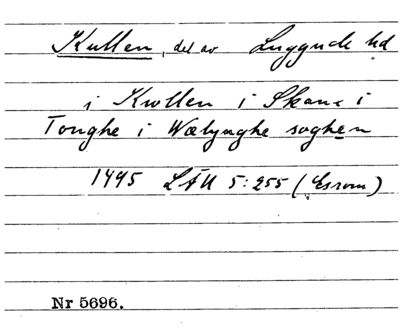 Kullen, del av Luggude hd
i Kwllen i Skane i
Tonghe i Wælynghe soghen
1495 LÄU 5:255 (Esrom)
Nr 5696.